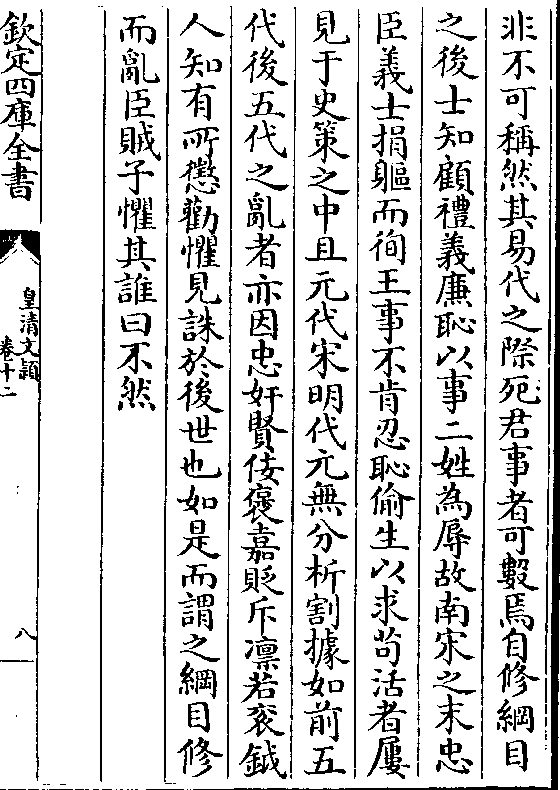 非不可稱然其易代之際死君事者可數焉自修綱目
之後士知顧禮義廉恥以事二姓為辱故南宋之末忠
臣義士捐軀而徇王事不肯忍恥偷生以求茍活者屢
見于史策之中且元代宋明代元無分析割據如前五
代後五代之亂者亦因忠奸賢佞褒嘉貶斥凛若衮鉞
人知有所懲勸懼見誅於後世也如是而謂之綱目修
而亂臣賊子懼其誰曰不然
欽定四庫全書
皇清文穎
卷十二
八